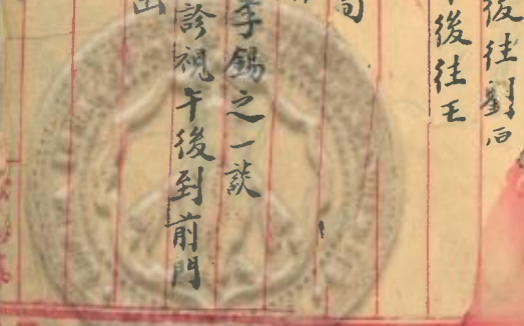 後往劉石
後往王
李錫之一談
診視午後到前門